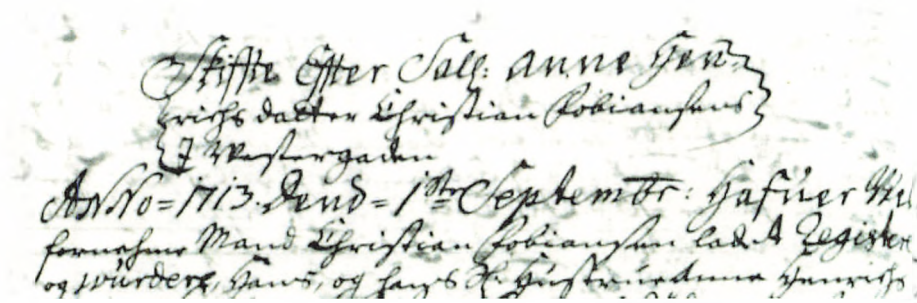 Skiffte Effter Sall: Anne Hen-
richs datter Christian Tobiansens
I Westergaden
ANNo = 1713. Dend = 1ste Septembr: Hafuer Wel
fornehme Mand Christian Tobiansen ladet Registere
og wurdere, Hans, og hans Sl. Hustrue Anne Henrichs